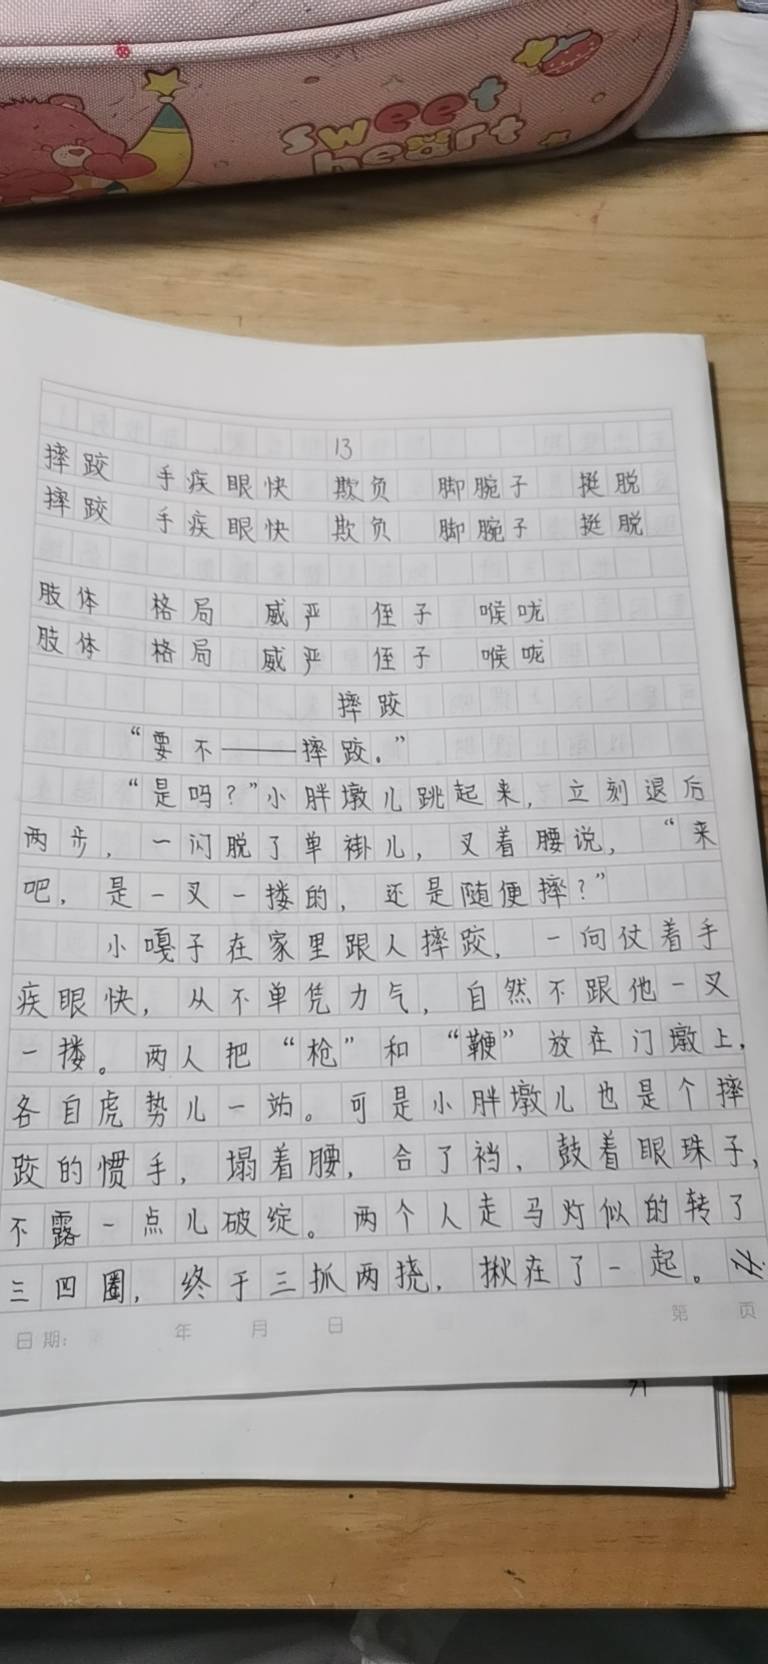 sweet
heart
13
摔跤 手疾眼快 欺负 脚腕子 挺脱
摔跤 手疾眼快 欺负 脚腕子 挺脱
肢体 格局 威严 侄子 喉咙
肢体 格局 威严 侄子 喉咙
摔跤
“要不——摔跤。”
“是吗？”小胖墩儿跳起来，立刻退后
两步，一闪脱了单褂儿，叉着腰说，“来
吧，是一叉一搂的，还是随便摔？”
小嘎子在家里跟人摔跤，一向仗着手
疾眼快，从不单凭力气，自然不跟他一叉
一搂。两人把“枪”和“鞭”放在门墩上，
各自虎势儿一站。可是小胖墩儿也是个摔
跤的惯手，塌着腰，合了裆，鼓着眼珠子，
不露一点儿破绽。两个人走马灯似的转了
三四圈，终于三抓两挠，揪在了一起。
日期： 年 月 日 第 页
71